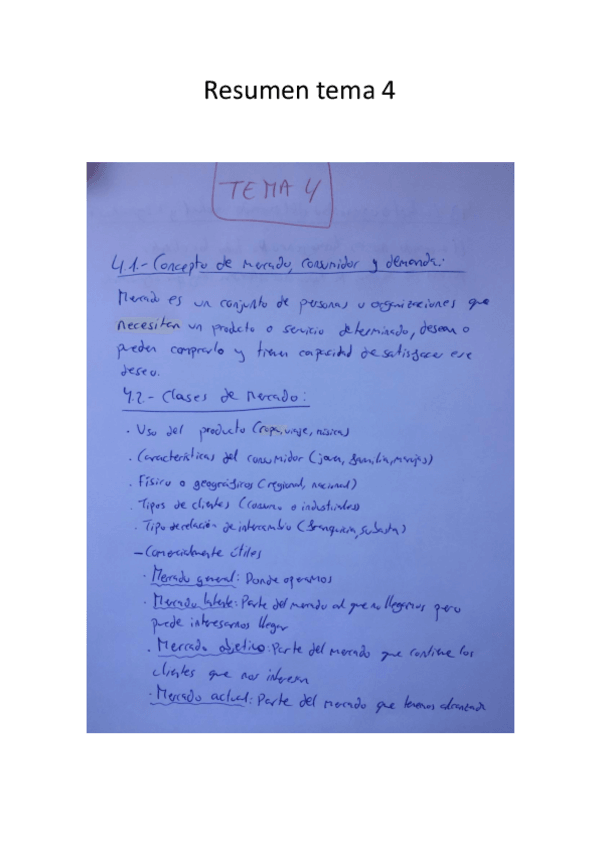 Resumen tema 4
TEMA 4
4.1.- Concepto de mercado, consumidor y demanda:
Mercado es un conjunto de personas u organizaciones que
necesitan un producto o servicio determinado, desean o
pueden comprarlo y tienen capacidad de satisfacer ese
deseo.
4.2.- Clases de mercado:
· Uso del producto (ropa, viaje, música)
· Características del consumidor (joven, familia,
· Físico o geográficos (regional, nacional)
· Tipos de clientes (consumo o industriales)
· Tipo de relación de intercambio (franquicia, subasta)
- Comercialmente útiles
· Mercado general: Donde operamos
· Mercado latente: Parte del mercado al que no llegamos pero
puede interesarnos llegar
· Mercado objetivo: Parte del mercado que contiene los
clientes que nos interesan
· Mercado actual: Parte del mercado que tenemos alcanzado